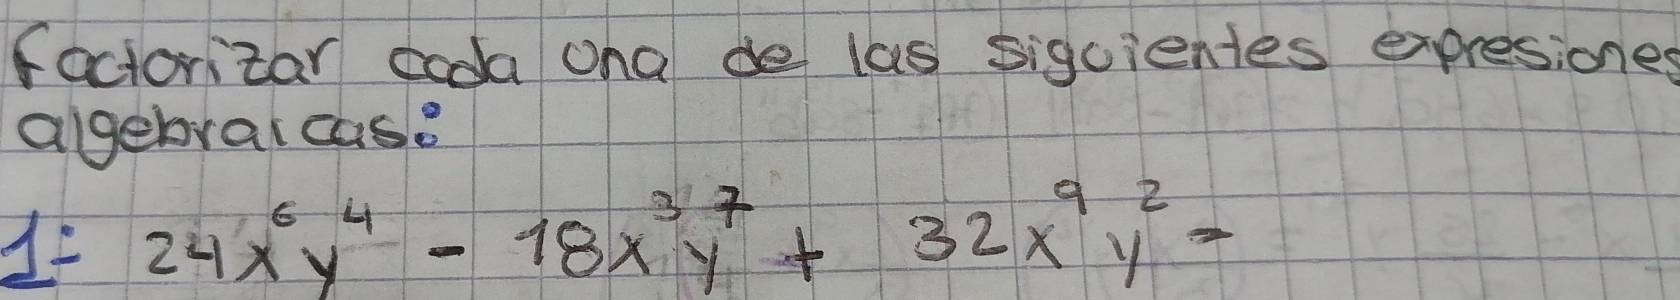 Factorizar cada una de las siguientes expresiones
algebraicas:
1= 24x⁶y⁴ - 18x³y⁷ + 32x⁹y² =